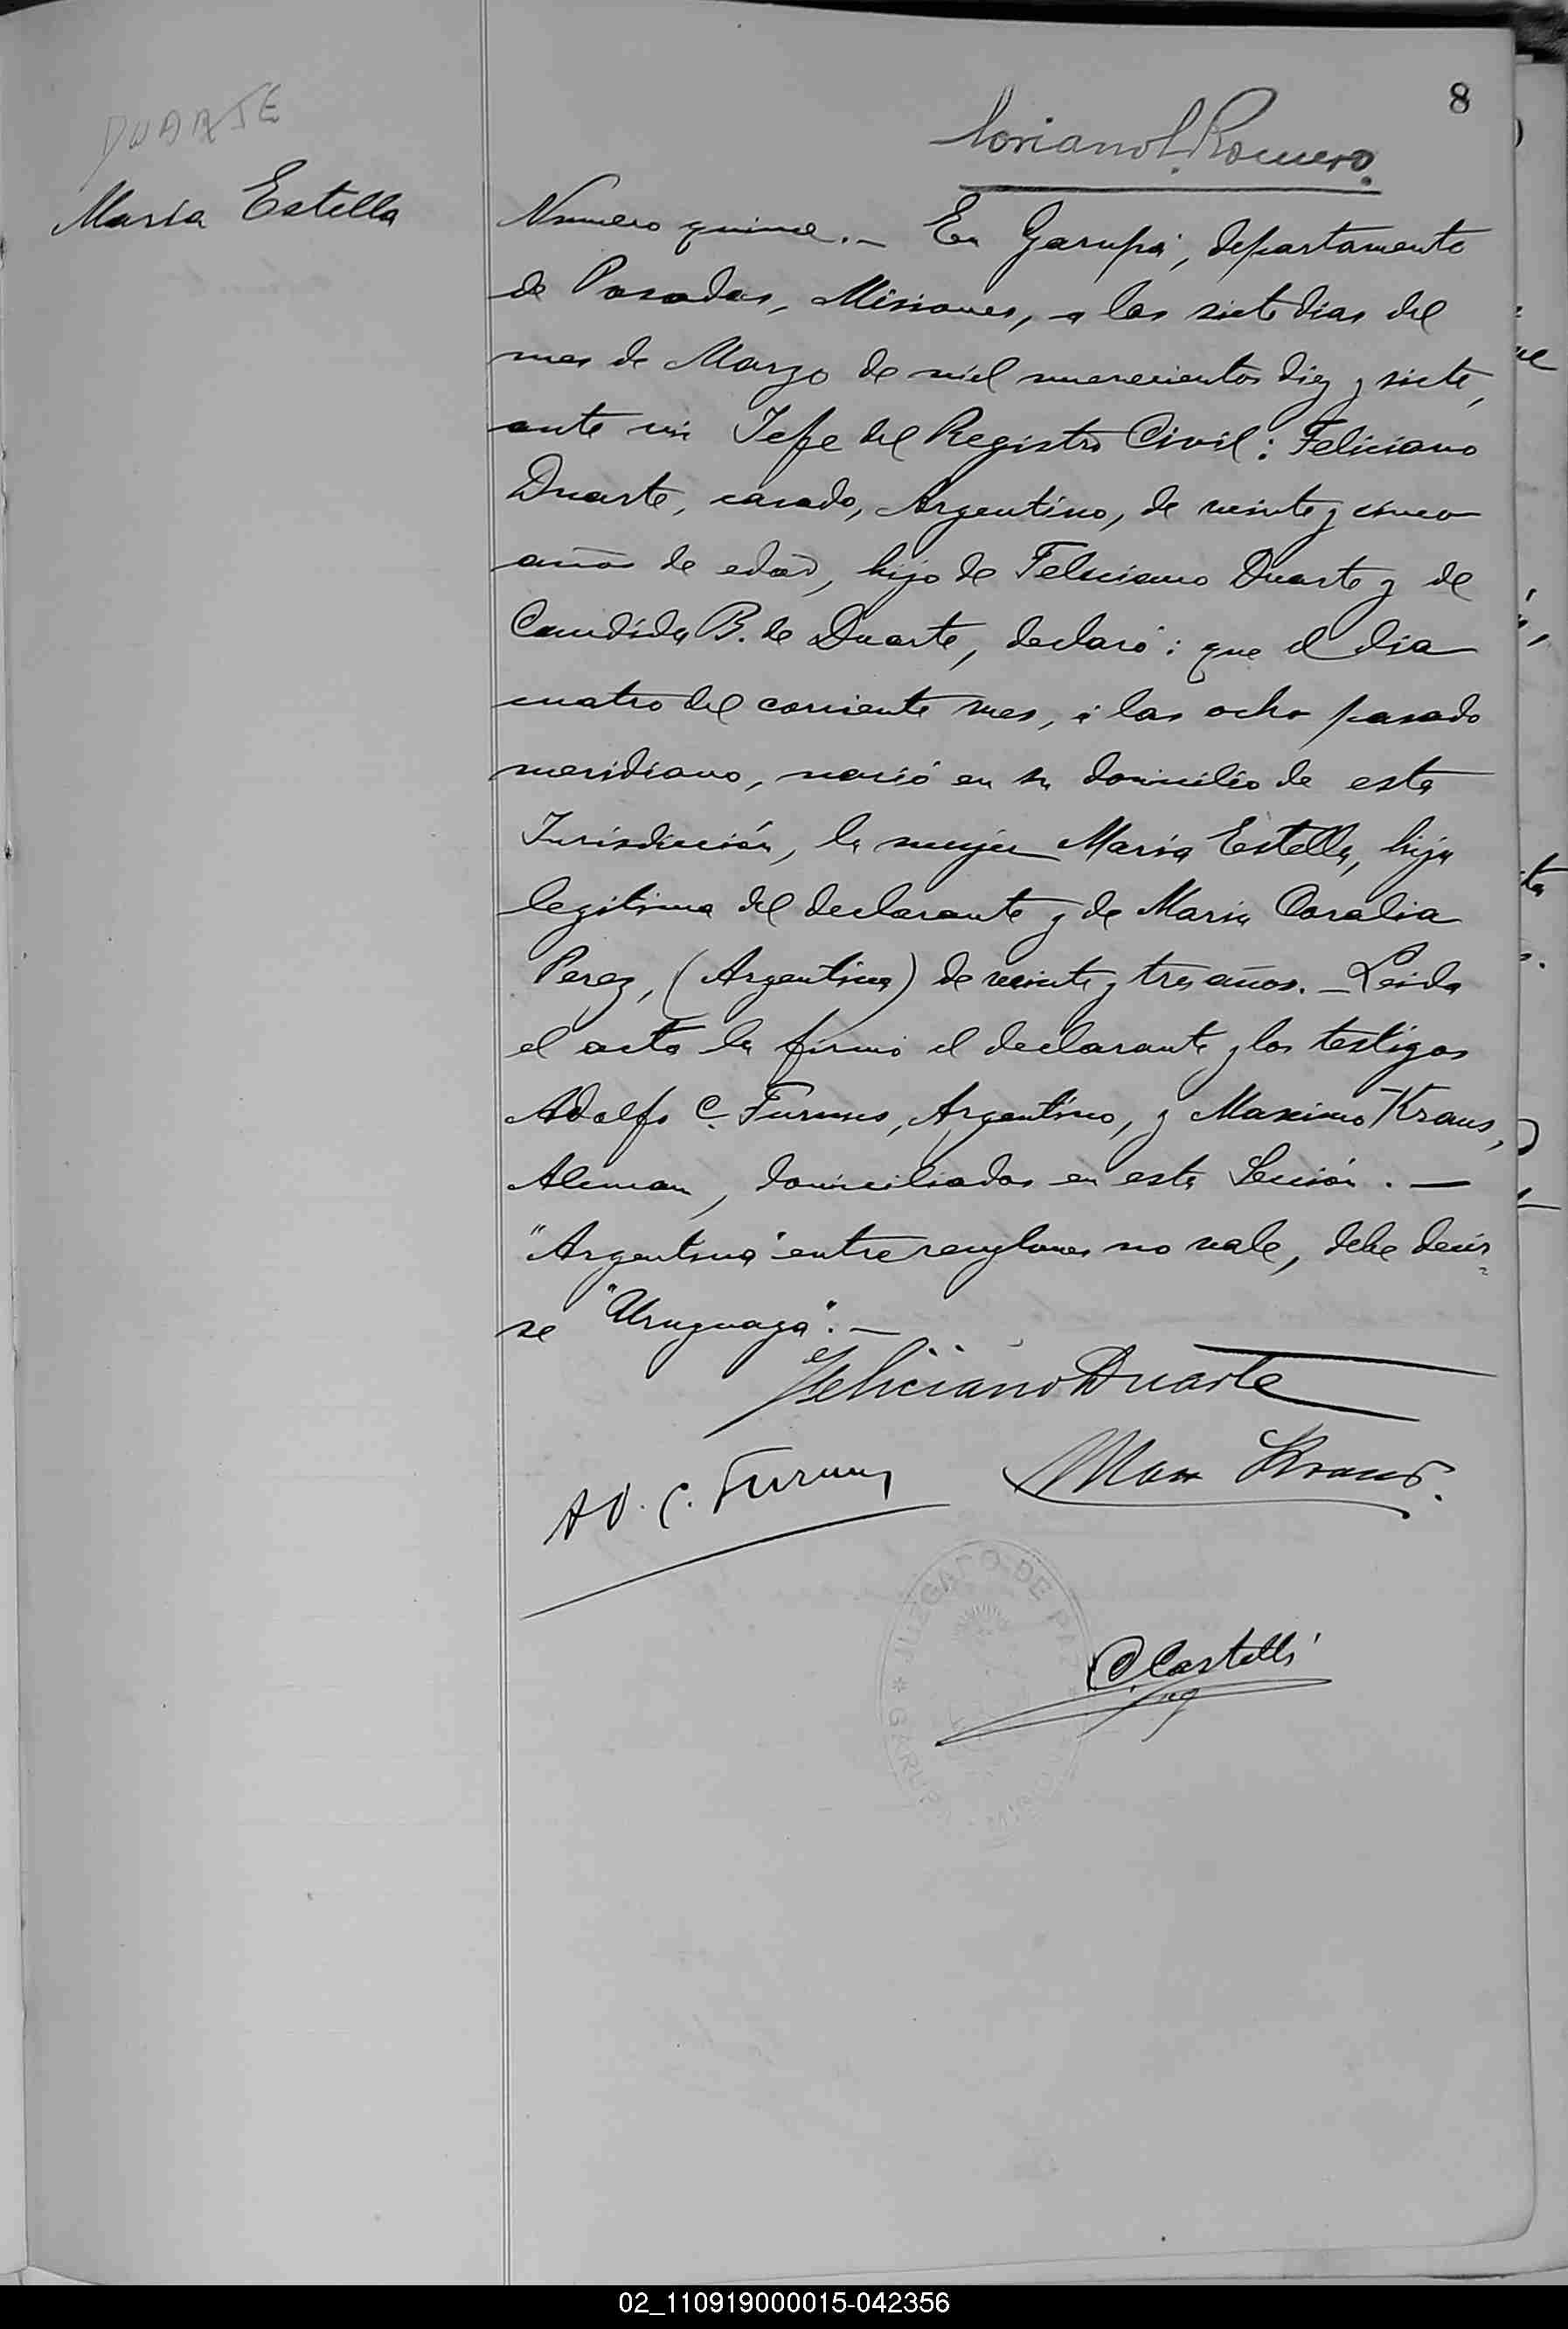 8
DUARTE
María Estella
Soriano L. Romero.
Numero quince.— En Garupá, departamento
de Posadas, Misiones, a los siete dias del
mes de Marzo de mil novecientos diez y siete,
ante mi Jefe del Registro Civil: Feliciano
Duarte, casado, Argentino, de veinte y cinco
años de edad, hijo de Feliciano Duarte y de
Candida B. de Duarte, declaró: que el dia
cuatro del corriente mes, á las ocho pasado
meridiano, nació en su domicilio de esta
Jurisdicción, la mujer María Estella, hija
legitima del declarante y de Maria Coralia
Perez, (Argentina) de veinte y tres años.— Leida
el acta la firmó el declarante y los testigos
Adolfo C. Furnus, Argentino, y Maximo Kraus,
Aleman, domiciliados en esta Sección.—
"Argentina" entre renglones no vale, debe decir-
se "Uruguaya".—
Feliciano Duarte
Ad. C. Furnus
Max Kraus.
JUZGADO DE PAZ
C Castelli
GARUPÁ